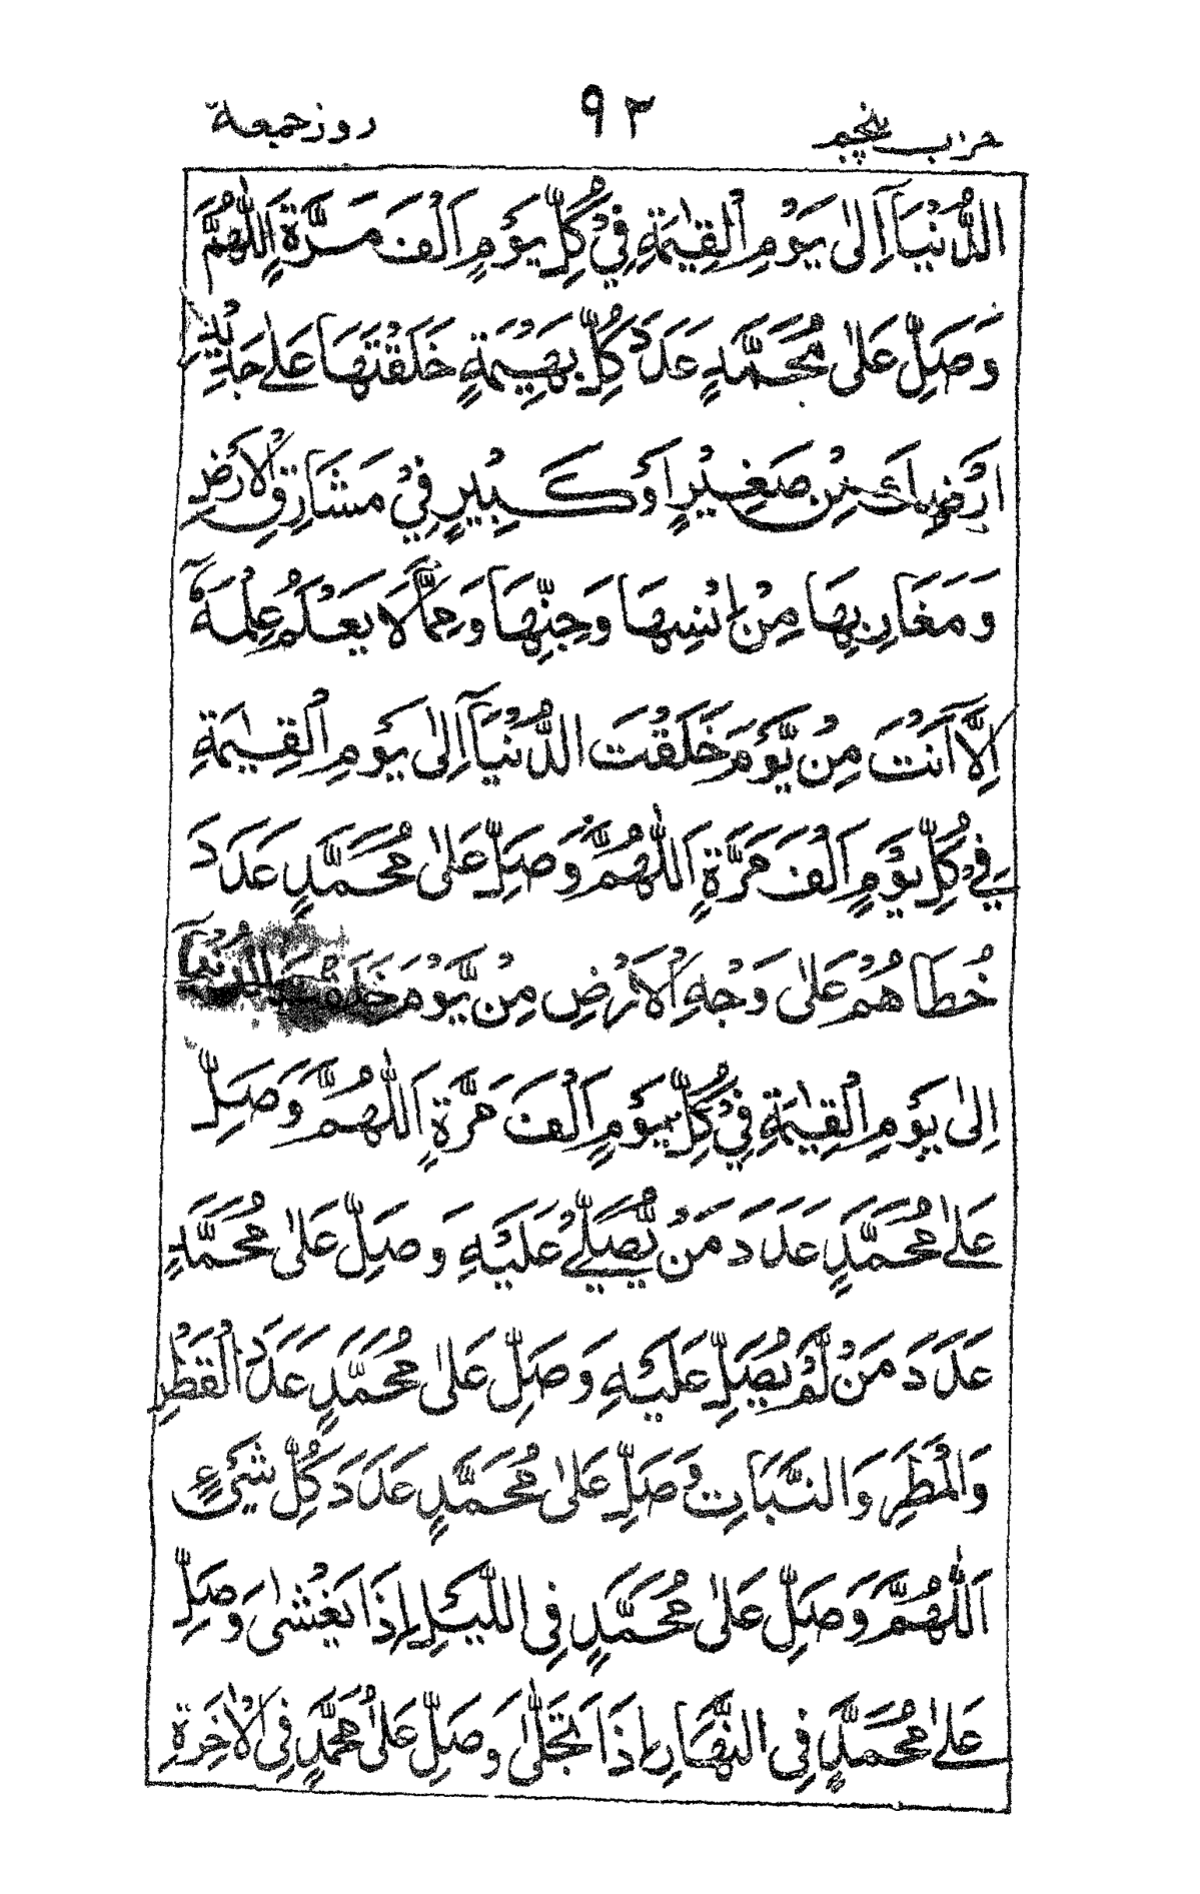 حزاب پنجم ٩٢ روز جمعة
الدُّنْيَآ اِلٰى يَوْمِ الْقِيٰمَةِ فِيْ كُلِّ يَوْمٍ اَلْفَ مَرَّةٍ اَللّٰهُمَّ
وَصَلِّ عَلٰى مُحَمَّدٍ عَدَدَ كُلِّ بَهِيْمَةٍ خَلَقْتَهَا عَلٰے جَدِيْدِ
اَرْضِكَ مِنْ صَغِيْرٍ اَوْ كَبِيْرٍ فِيْ مَشَارِقِ الْاَرْضِ
وَمَغَارِبِهَا مِنْ اِنْسِهَا وَجِنِّهَا وَمِمَّا لَا يَعْلَمُ عِلْمَهٗٓ
اِلَّآ اَنْتَ مِنْ يَّوْمَ خَلَقْتَ الدُّنْيَآ اِلٰى يَوْمِ الْقِيٰمَةِ
فِيْ كُلِّ يَوْمٍ اَلْفَ مَرَّةٍ اَللّٰهُمَّ وَصَلِّ عَلٰى مُحَمَّدٍ عَدَدَ
خُطَاهُمْ عَلٰى وَجْهِ الْاَرْضِ مِنْ يَّوْمَ خَلَقْتَ الدُّنْيَآ
اِلٰى يَوْمِ الْقِيٰمَةِ فِيْ كُلِّ يَوْمٍ اَلْفَ مَرَّةٍ اَللّٰهُمَّ وَصَلِّ
عَلٰے مُحَمَّدٍ عَدَدَ مَنْ يُّصَلِّيْ عَلَيْهِ وَصَلِّ عَلٰى مُحَمَّدٍ
عَدَدَ مَنْ لَّمْ يُصَلِّ عَلَيْهِ وَصَلِّ عَلٰى مُحَمَّدٍ عَدَدَ الْقَطْرِ
وَالْمَطَرِ وَالنَّبَاتِ وَصَلِّ عَلٰى مُحَمَّدٍ عَدَدَ كُلِّ شَيْءٍ
اَللّٰهُمَّ وَصَلِّ عَلٰى مُحَمَّدٍ فِى اللَّيْلِ اِذَا يَغْشٰى وَصَلِّ
عَلٰے مُحَمَّدٍ فِى النَّهَارِ اِذَا تَجَلّٰى وَصَلِّ عَلٰى مُحَمَّدٍ فِى الْاٰخِرَةِ